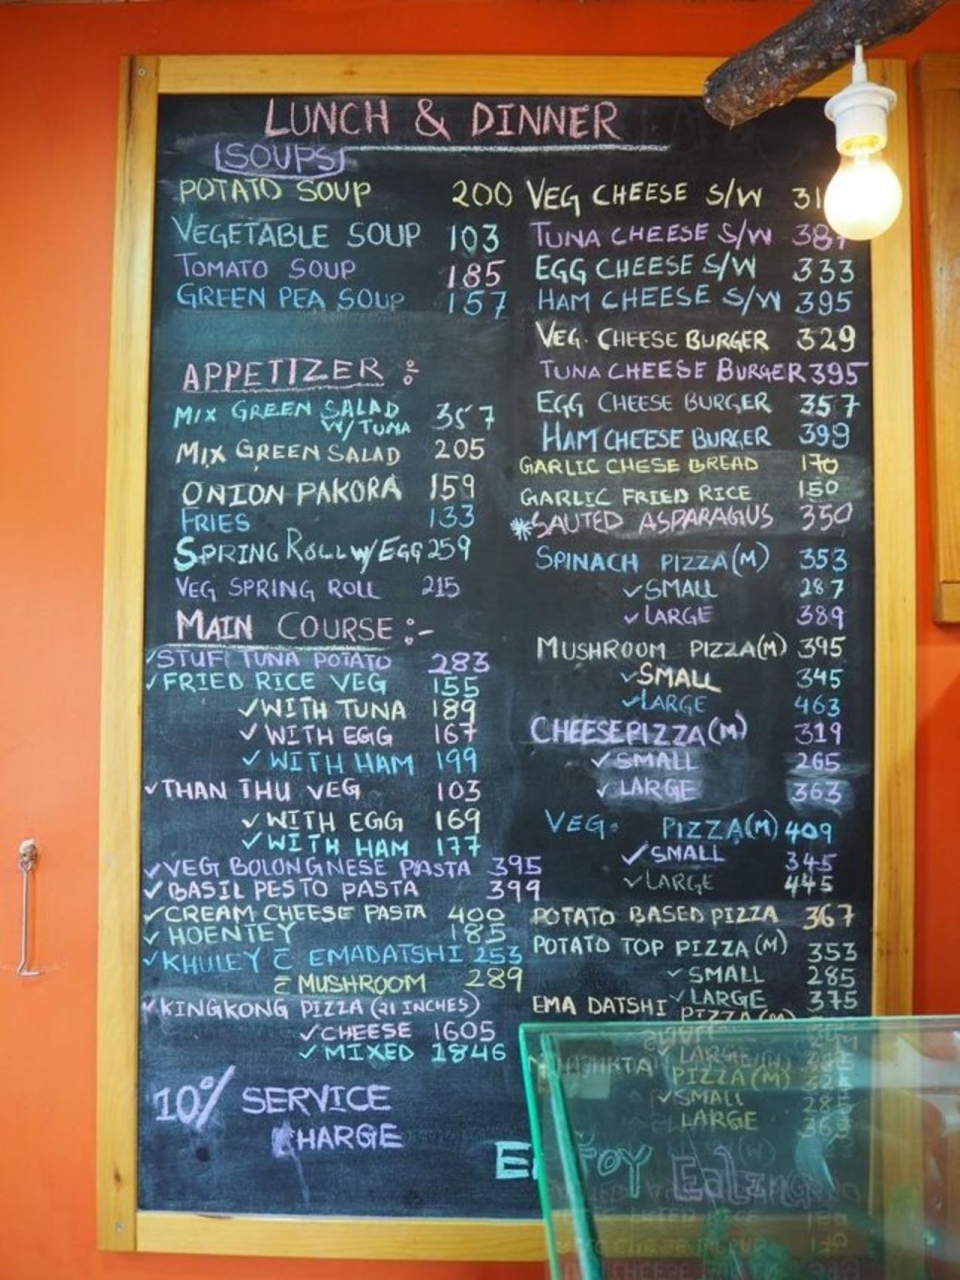 LUNCH & DINNER
SOUPS
POTATO SOUP 200
VEGETABLE SOUP 103
TOMATO SOUP 185
GREEN PEA SOUP 157
APPETIZER :
MIX GREEN SALAD
W/TUNA 357
MIX GREEN SALAD 205
ONION PAKORA 159
FRIES 133
SPRING ROLL W/EGG 259
VEG SPRING ROLL 215
MAIN COURSE :-
✓STUF TUNA POTATO 283
✓FRIED RICE VEG 155
✓WITH TUNA 189
✓WITH EGG 167
✓WITH HAM 199
✓THAN THU VEG 103
✓WITH EGG 169
✓WITH HAM 177
✓VEG BOLONGNESE PASTA 395
✓BASIL PESTO PASTA 399
✓CREAM CHEESE PASTA 400
✓HOENTEY 185
✓KHULEY C̄ EMADATSHI 253
C̄ MUSHROOM 289
✓KINGKONG PIZZA (21 INCHES)
✓CHEESE 1605
✓MIXED 1846
10% SERVICE
CHARGE
VEG CHEESE S/W
TUNA CHEESE S/W 387
EGG CHEESE S/W 333
HAM CHEESE S/W 395
VEG. CHEESE BURGER 329
TUNA CHEESE BURGER 395
EGG CHEESE BURGER 357
HAM CHEESE BURGER 399
GARLIC CHESE BREAD 170
GARLIC FRIED RICE 150
*SAUTED ASPARAGUS 350
SPINACH PIZZA (M) 353
✓SMALL 287
✓LARGE 389
MUSHROOM PIZZA (M) 395
✓SMALL 345
✓LARGE 463
CHEESE PIZZA (M) 319
✓SMALL 265
✓LARGE 363
VEG. PIZZA (M) 409
✓SMALL 345
✓LARGE 445
POTATO BASED PIZZA 367
POTATO TOP PIZZA (M) 353
✓SMALL 285
✓LARGE 375
EMA DATSHI PIZZA (M)
✓LARGE
PIZZA (M)
✓SMALL
LARGE
ENJOY Eating